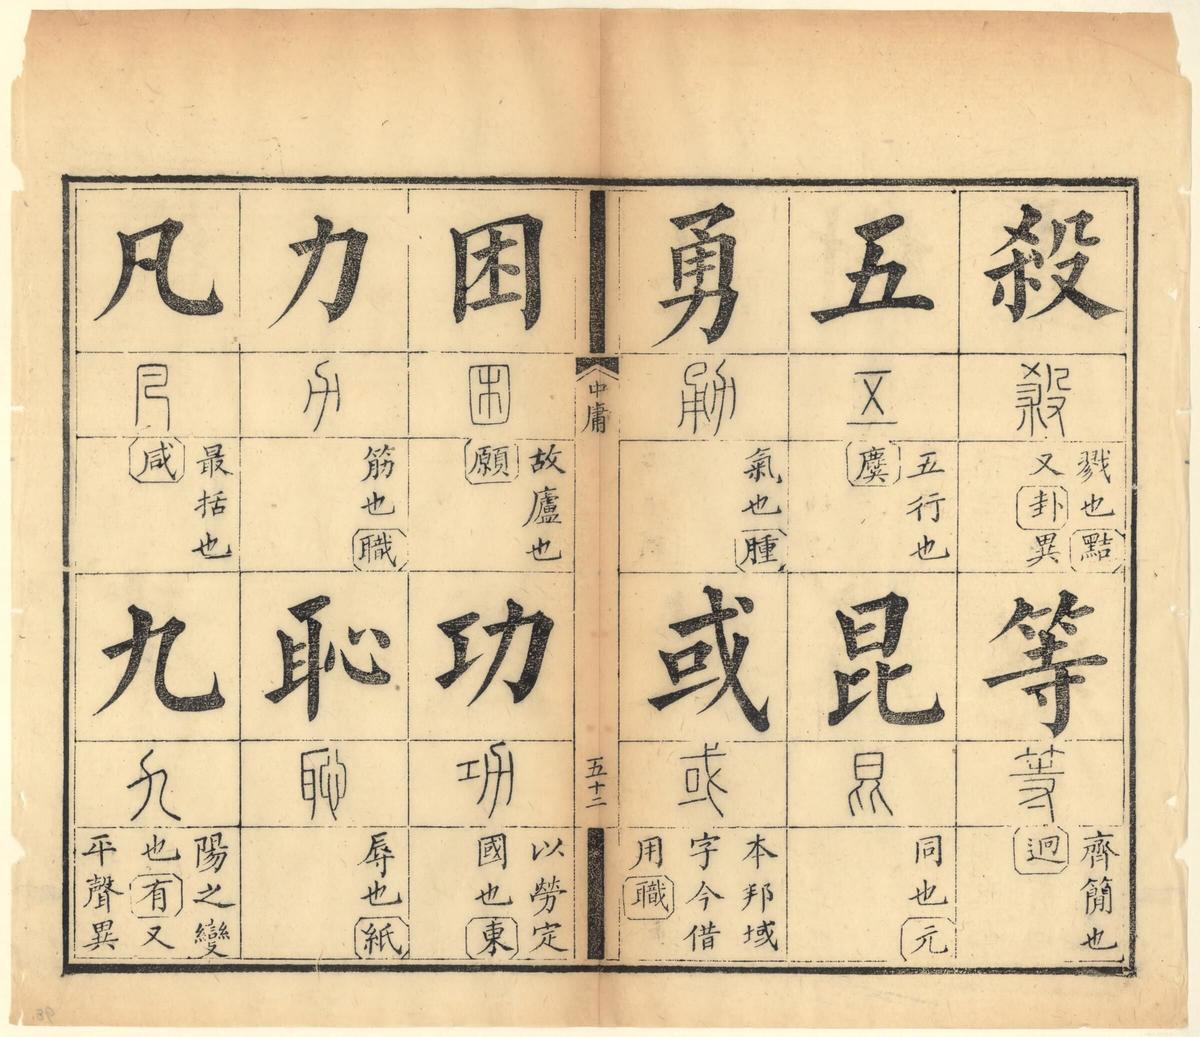 殺
殺
戮也黠
又卦異
等
等
齊簡也
迥
五
五
五行也
麌
昆
昆
同也元
勇
勇
氣也腫
或
或
本邦域
字今借
用職
中庸
五十二
困
困
故廬也
願
功
功
以勞定
國也東
力
力
筋也職
恥
恥
辱也紙
凡
凡
最括也
咸
九
九
陽之變
也有又
平聲異
98